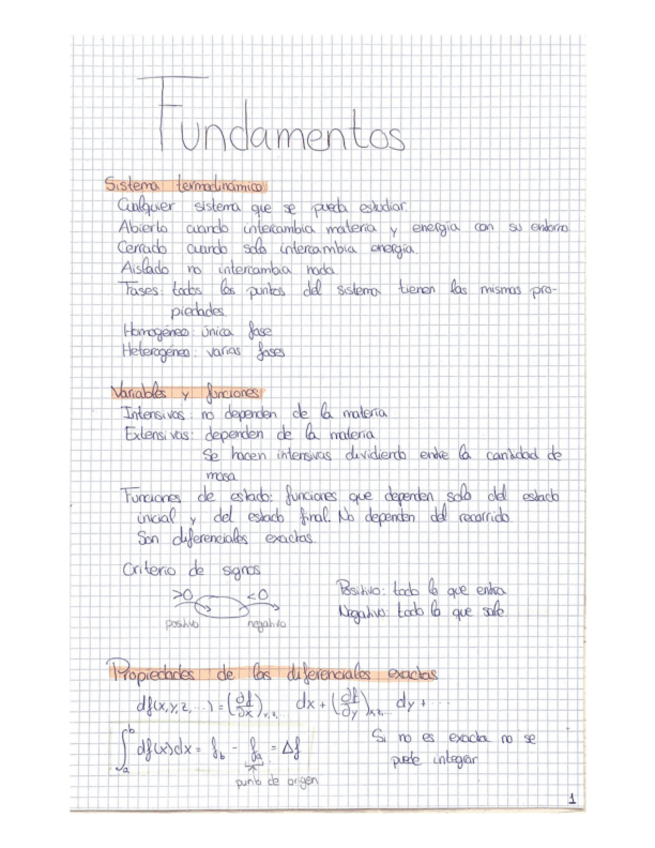 Fundamentos
Sistema termodinámico
Cualquier sistema que se pueda estudiar.
Abierto cuando intercambia materia y energía con su entorno
Cerrado cuando solo intercambia energía.
Aislado no intercambia nada.
Fases: todos los puntos del sistema tienen las mismas pro-
piedades.
Homogéneo: única fase
Heterogéneo: varias fases
Variables y funciones
Intensivas: no dependen de la materia
Extensivas: dependen de la materia
Se hacen intensivas dividiendo entre la cantidad de
masa
Funciones de estado: funciones que dependen solo del estado
inicial y del estado final. No dependen del recorrido.
Son diferenciales exactas.
Criterio de signos
>0 <0
positivo negativo
Positivo: todo lo que entra
Negativo: todo lo que sale
Propiedades de las diferenciales exactas
df(x,y,z,...) = (∂f/∂x) dx + (∂f/∂y) dy + ...
∫ₐᵇ df(x)dx = f_b - f_a = Δf
punto de origen
Si no es exacta no se
puede integrar
1